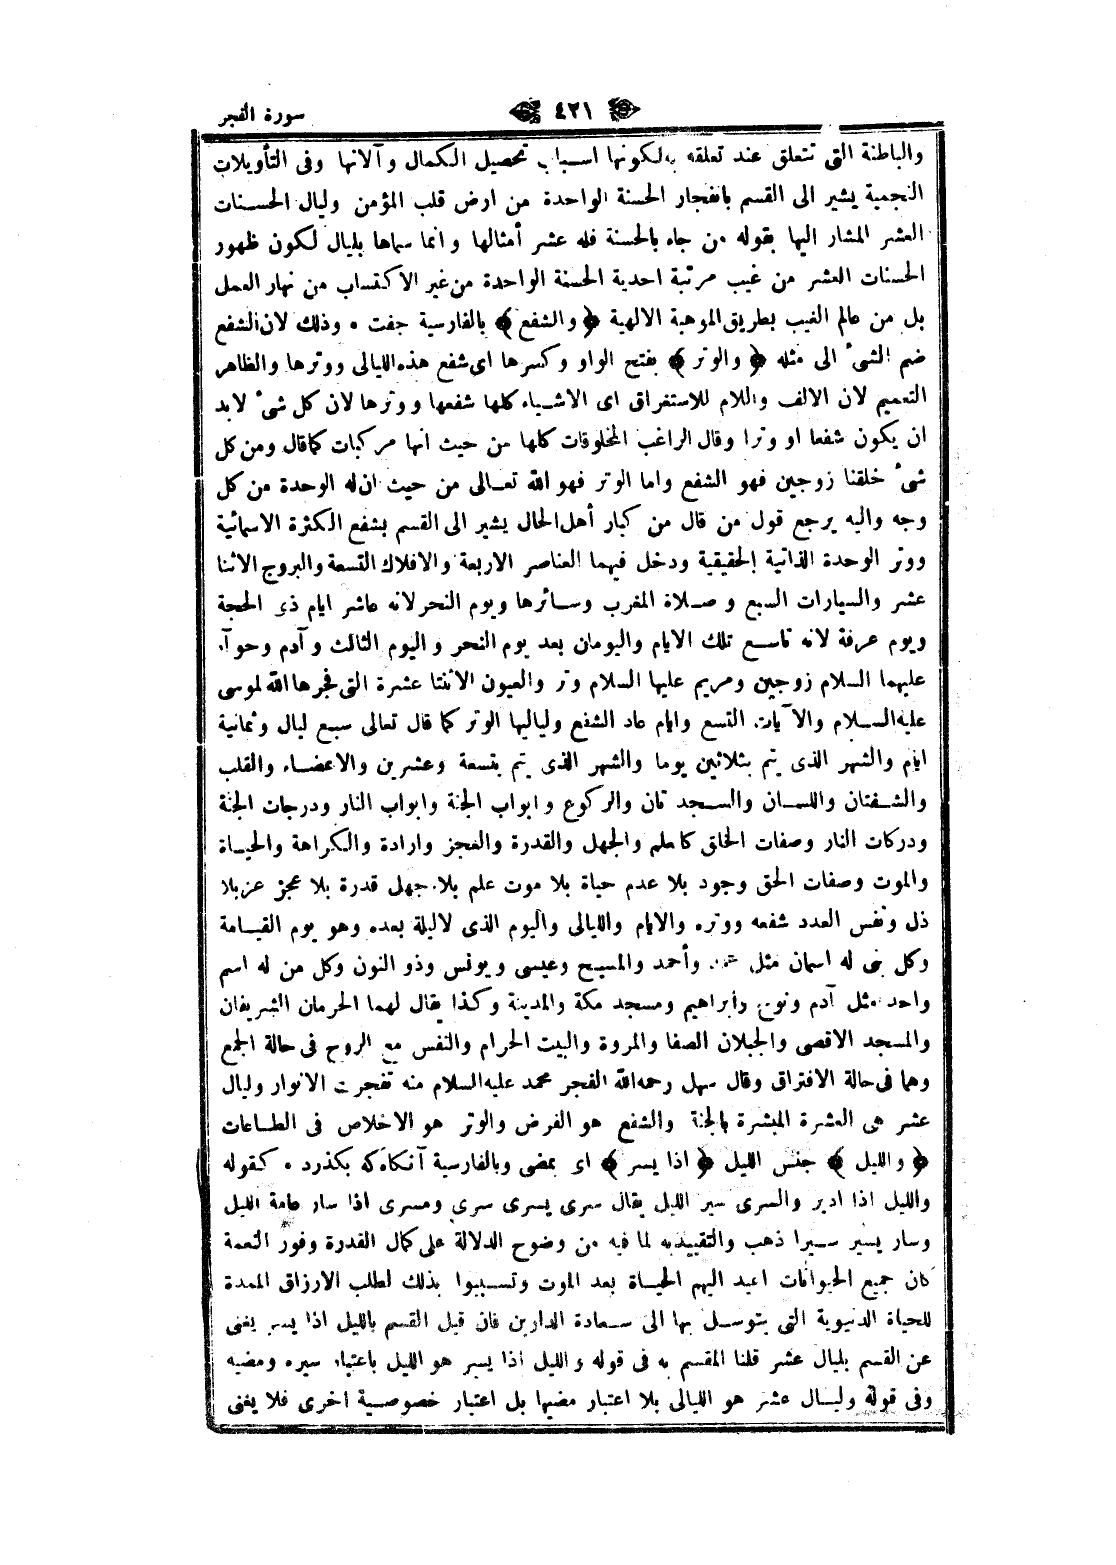 سورة الفجر
٤٢١
والباطنة التى تتعلق عند تعلقه به لكونها اسباب تحصيل الكمال وآلاتها وفى التأويلات
النجمية يشير الى القسم بانفجار الحسنة الواحدة من ارض قلب المؤمن وليال الحسنات
العشر المشار اليها بقوله من جاء بالحسنة فله عشر أمثالها وانما سماها بليال لكون ظهور
الحسنات العشر من غيب مرتبة احدية الحسنة الواحدة من غير الاكتساب من نهار العمل
بل من عالم الغيب بطريق الموهبة الالهية ﴿ والشفع ﴾ بالفارسية جفت ٠ وذلك لان الشفع
ضم الشىء الى مثله ﴿ والوتر ﴾ بفتح الواو وكسرها اى شفع هذه الليالى ووترها والظاهر
التعميم لان الالف واللام للاستغراق اى الاشياء كلها شفعها ووترها لان كل شىء لابد
ان يكون شفعا او وترا وقال الراغب المخلوقات كلها من حيث انها مركبات كما قال ومن كل
شىء خلقنا زوجين فهو الشفع واما الوتر فهو الله تعالى من حيث ان له الوحدة من كل
وجه واليه يرجع قول من قال من كبار أهل الحال يشير الى القسم بشفع الكثرة الاسمائية
ووتر الوحدة الذاتية الحقيقية ودخل فيهما العناصر الاربعة والافلاك التسعة والبروج الاثنا
عشر والسيارات السبع و صلاة المغرب وسائرها ويوم النحر لانه عاشر ايام ذى الحجة
ويوم عرفة لانه تاسع تلك الايام واليومان بعد يوم النحر و اليوم الثالث و آدم وحوآء
عليهما السلام زوجين ومريم عليها السلام وتر والعيون الاثنتا عشرة التى فجرها الله لموسى
عليه السلام والآيات التسع وايام عاد الشفع ولياليها الوتر كما قال تعالى سبع ليال وثمانية
ايام والشهر الذى يتم بثلاثين يوما والشهر الذى يتم بتسعة وعشرين والاعضاء والقلب
والشفتان واللسان والسجدتان والركوع وابواب الجنة وابواب النار ودرجات الجنة
ودركات النار وصفات الخلق كالعلم والجهل والقدرة والعجز وارادة والكراهة والحياة
والموت وصفات الحق وجود بلا عدم حياة بلا موت علم بلا جهل قدرة بلا عجز عز بلا
ذل ونفس العدد شفعه ووتره والايام والليالى واليوم الذى لا ليلة بعده وهو يوم القيامة
وكل نبى له اسمان مثل محمد وأحمد والمسيح وعيسى ويونس وذو النون وكل من له اسم
واحد مثل آدم ونوح وابراهيم ومسجد مكة والمدينة وكذا يقال لهما الحرمان الشريفان
والمسجد الاقصى والجبلان الصفا والمروة والبيت الحرام والنفس مع الروح فى حالة الجمع
وهما فى حالة الافتراق وقال سهل رحمه الله الفجر محمد عليه السلام منه تفجرت الانوار وليال
عشر هى العشرة المبشرة بالجنة والشفع هو الفرض والوتر هو الاخلاص فى الطاعات
﴿ والليل ﴾ جنس الليل ﴿ اذا يسر ﴾ اى يمضى وبالفارسية آنكاه كه بكذرد ٠ كقوله
والليل اذا ادبر والسرى سير الليل يقال سرى يسرى سرى ومسرى اذا سار عامة الليل
وسار يسير سيرا ذهب والتقييد به لما فيه من وضوح الدلالة على كمال القدرة وفور النعمة
كان جميع الحيوانات اعيد اليهم الحياة بعد الموت وتسببوا بذلك لطلب الارزاق الممدة
للحياة الدنيوية التى يتوسل بها الى سعادة الدارين فان قيل القسم بالليل اذا يسر يغنى
عن القسم بليال عشر قلنا المقسم به فى قوله والليل اذا يسر هو الليل باعتبار سيره ومضيه
وفى قوله وليال عشر هو الليالى بلا اعتبار مضيها بل اعتبار خصوصية اخرى فلا يغنى